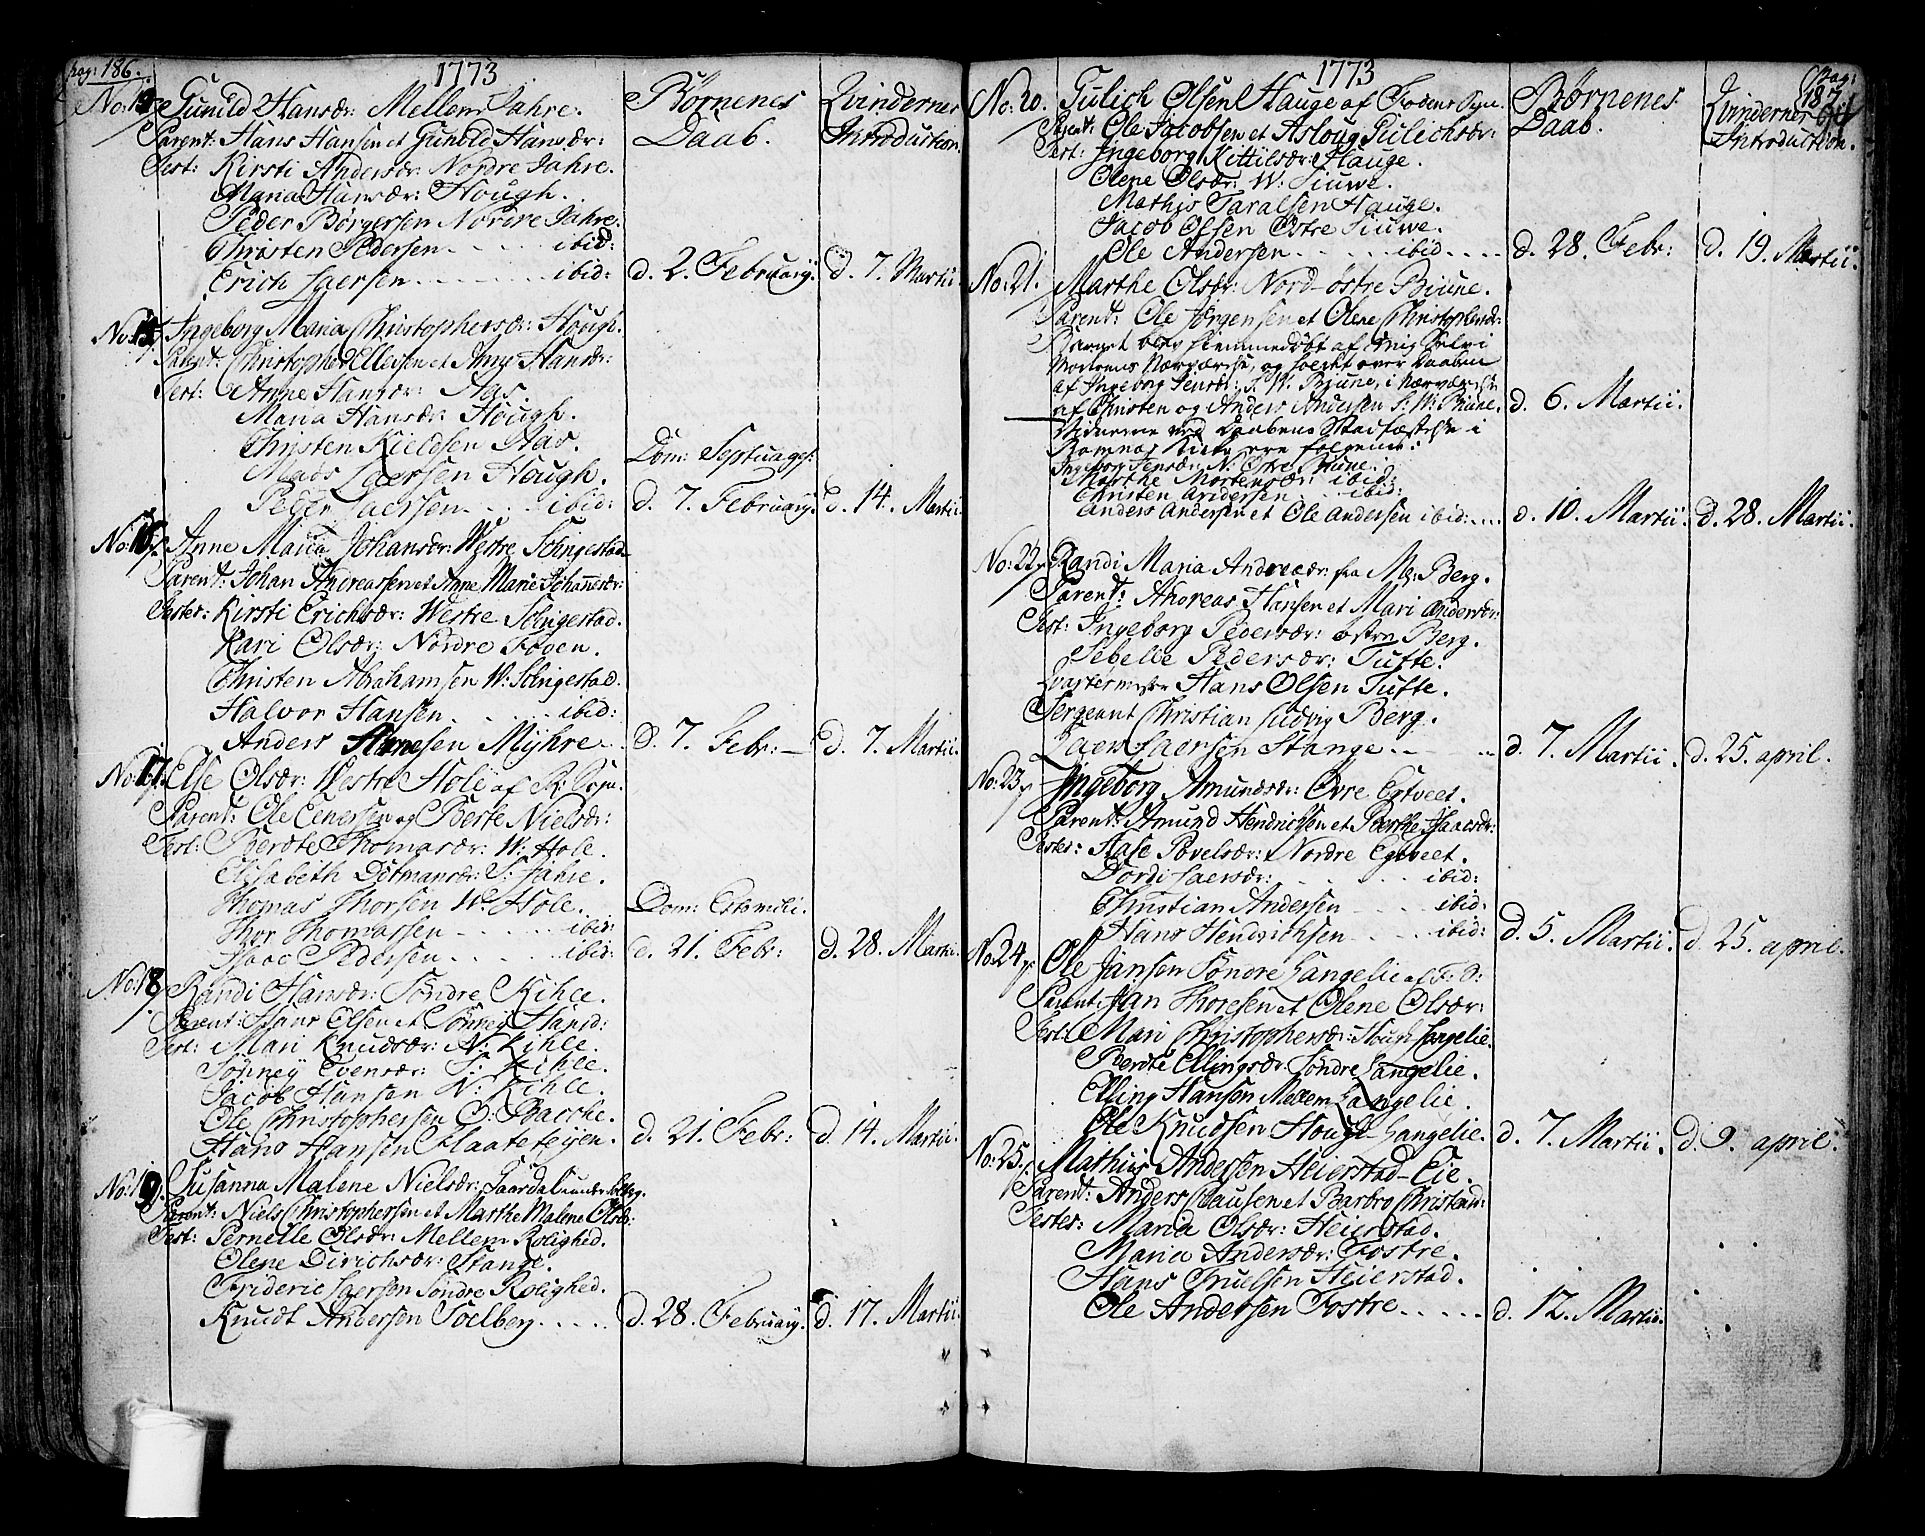 pag: 186.
1773
Børnenes Daab.
Qvindernes Introduction.
No: Gunild Hansdr: Mellem Jahre.
Parent: Hans Hansen et Gunild Hansdr:
Test: Kirsti Andersdr: Nordre Jahre.
Maria Hansdr: Hough.
Peder Børgersen Nordre Jahre.
Christen Pedersen ibid:
Erich Laersen ibid: d. 2. Februarij. d. 7. Martii.
No: 15. Ingeborg Maria Christophersdr: Hough.
Parent: Christopher Ellefsen et Anne Hansdr:
Test: Anne Hansdr: Aas.
Maria Hansdr: Hough.
Christen Kieldsen Aas.
Mads Laersen Hough. Dom: Septuages:
Peder Laersen ibid: d. 7. Februarij. d. 14. Martii.
No: 16. Anne Maria Johansdr: Westre Solngestad
Parent: Johan Andreassen et Anne Marie Johannsdr:
Testes: Kirsti Erichsdr: Westre Solngestad.
Kari Olsdr: Nordre Foven.
Christen Abrahamsen W: Solngestad.
Halvor Hansen ibid:
Anders Hansen Myhre d. 7. Febr: d. 7. Martii.
No: 17. Else Olsdr: Westre Hole af R. Sogn.
Parent: Ole Enersen og Berte Nielsdr:
Test: Berdte Thomasdr: W: Hole.
Elisabeth Ditmansdr: S: Jahre.
Thomas Thorsen W: Hole. Dom: Estomihi.
Thor Thomassen ibid:
Isaac Pedersen ibid: d. 21. Febr: d. 28. Martii.
No: 18. Randi Hansdr: Søndre Kihle.
Parent: Hans Olsen et Sønnev Hansd:
Test: Mari Knudsdr: N: Kihle.
Sønnev Evensdr: S: Kihle.
Jacob Hansen N: Kihle.
Ole Christophersen O: Bache.
Hans Hansen Klaateteijen. d. 21. Febr: d. 14. Martii.
No: 19. Susanna Malene Nielsdr: Taardal under Solbg.
Parent: Niels Christophersen et Marthe Malene Olsd:
Test: Pernelle Olsdr: Mellem Rolighed.
Olene Dirichsdr: Stange.
Frideric Laersen Søndre Rolighed.
Knudt Andersen Solberg d. 28. Februarij. d. 17. Martii.
pag: 187.
1773
Børnenes Daab.
Qvindernes Introduction.
No: 20. Gulich Olsen Hauge af Fodens Sogn.
Parent: Ole Jacobsen et Asloug Gulichsdr:
Test: Ingeborg Kittilsdr: Hauge.
Olene Olsdr: W: Siuwe.
Mathis Taralsen Hauge.
Jacob Olsen Østre Siuwe.
Ole Andersen ibid d. 28. Febr: d. 19. Martii.
No: 21. Marthe Olsdr: Nord-østre Biune.
Parent: Ole Jørgensen et Olene Christophersdr:
Barnet blev hiemmedøbt af mig Selv i
Moderens Nærværelse, og holdt over Daaben
af Ingeborg Jensdr: S. W. Biune, i nærværelse
af Christen og Anders Andersen S. W: Biune. d. 6. Martii.
Vidnerne ved Daabens Stadfæstelse i
Ramnæs Kirke ere følgende:
Ingeborg Jensdr: N: Østre Biune.
Marthe Mortensdr: ibid:
Christen Andersen ibid:
Anders Andersen et Ole Andersen ibid: d. 10. Martii. d. 28. Martii.
No: 22. Randi Maria Andreædr: fra Ms: Berg.
Parent: Andreas Hansen et Mari Andersdr:
Test: Ingeborg Pedersdr: østre Berg.
Sebelle Pedersdr: Tufte.
Qvartermester Hans Olsen Tufte.
Sergeant Christian Ludvig Berg.
Laers Laersen Stange d. 7. Martii. d. 25. april.
No: 23. Ingeborg Amundsdr: Øvre Egtveet.
Parent: Amund Hendrichsen et Berthe Isaacsdr:
Testes: Aase Povelsdr: Nordre Egtveet.
Dordi Laersdr: ibid:
Christian Andersen ibid:
Hans Hendrichsen ibid: d. 5. Martii. d. 25. april.
No: 24. Ole Jansen Søndre Langelie af F: S:
Parent: Jan Thoresen et Olene Olsdr:
Test: Mari Christophersdr: Hough Langelie.
Berdte Ellingsdr: Søndre Langelie.
Elling Hansen Mellem Langelie.
Ole Knudsen Hough Langelie. d. 7. Martii. d. 9. april.
No: 25. Mathis Andersen Heierstad-Eie.
Parent: Anders Clausen et Barbro Christensd:
Testes: Maria Olsdr: Heierstad.
Maria Andersdr: Fostre.
Hans Truelsen Heierstad.
Ole Andersen Fostre d. 12. Martii.